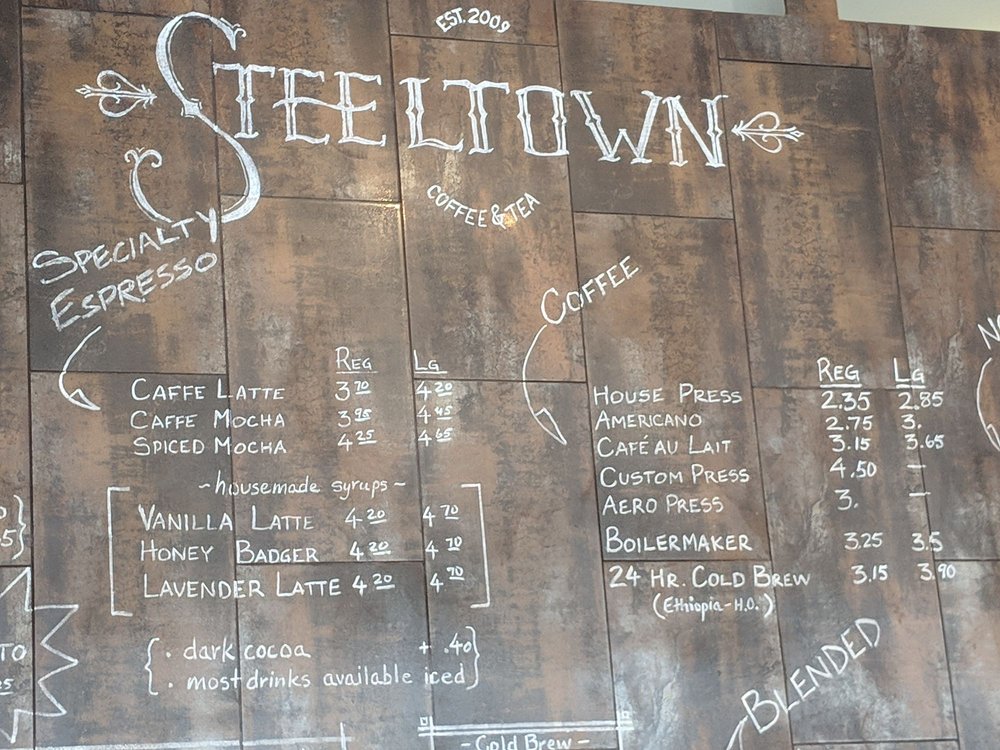 EST. 2009
STEELTOWN
COFFEE & TEA
SPECIALTY
ESPRESSO
REG LG
CAFFE LATTE 3.70 4.20
CAFFE MOCHA 3.95 4.45
SPICED MOCHA 4.25 4.65
~housemade syrups~
VANILLA LATTE 4.20 4.70
HONEY BADGER 4.20 4.70
LAVENDER LATTE 4.20 4.70
{ . dark cocoa + .40 }
{ . most drinks available iced }
COFFEE
REG LG
HOUSE PRESS 2.35 2.85
AMERICANO 2.75 3.
CAFÉ AU LAIT 3.15 3.65
CUSTOM PRESS 4.50 —
AERO PRESS 3. —
BOILERMAKER 3.25 3.5
24 HR. COLD BREW 3.15 3.90
(Ethiopia-H.O.)
BLENDED
- Cold Brew -